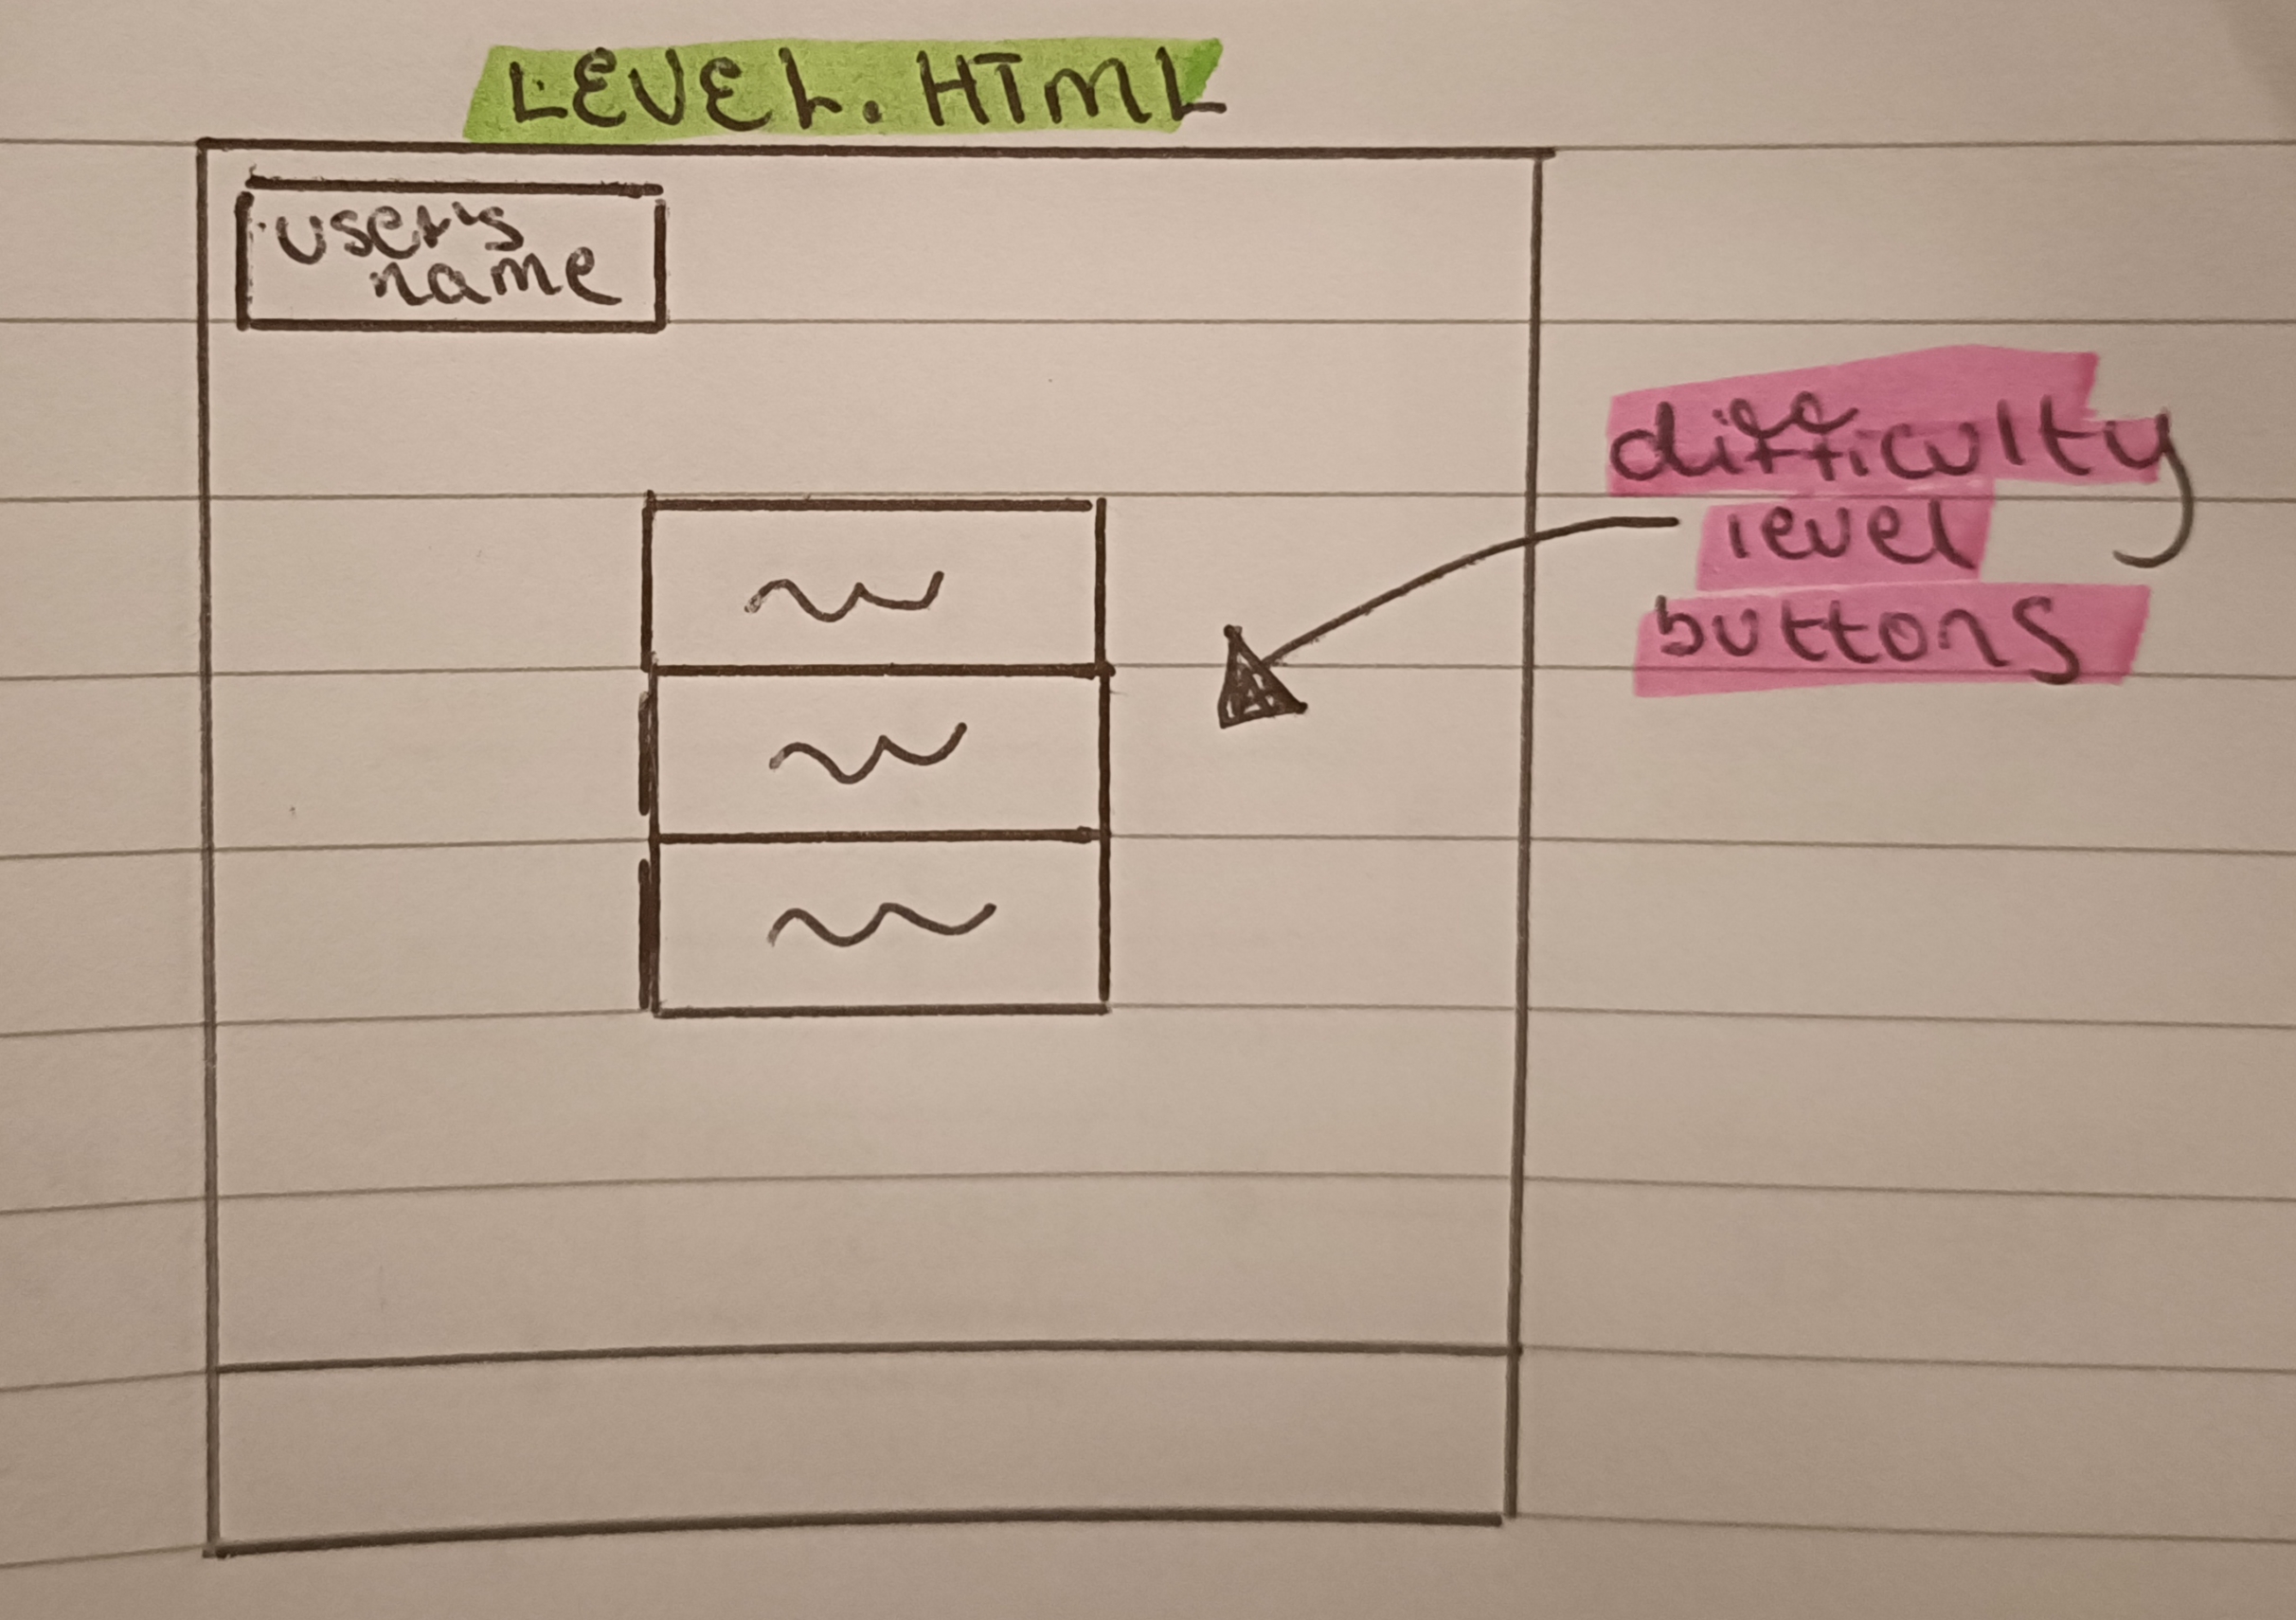 LEVEL.HTML
user's
name
difficulty
level
buttons